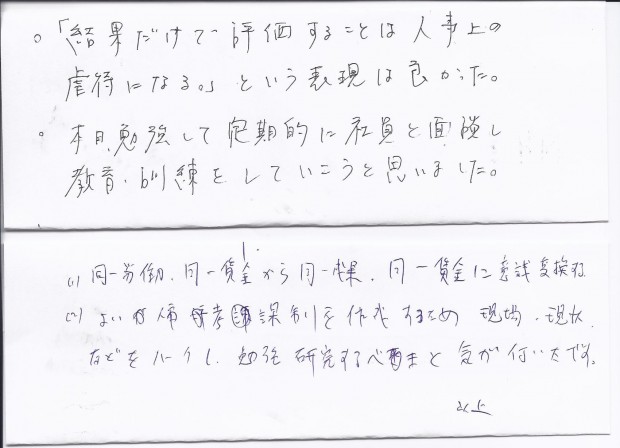 。「結果だけで評価することは人事上の
虐待になる。」という表現は良かった。
。本日、勉強して定期的に社員と面談し
教育、訓練をしていこうと思いました。
1.
(1) 同一労働、同一賃金から同一成果、同一賃金に意識変換する
(2) よい人事考課制を作成するため 現場、現状
などをハークし、勉強 研究するべきと気が付いたです。
以上